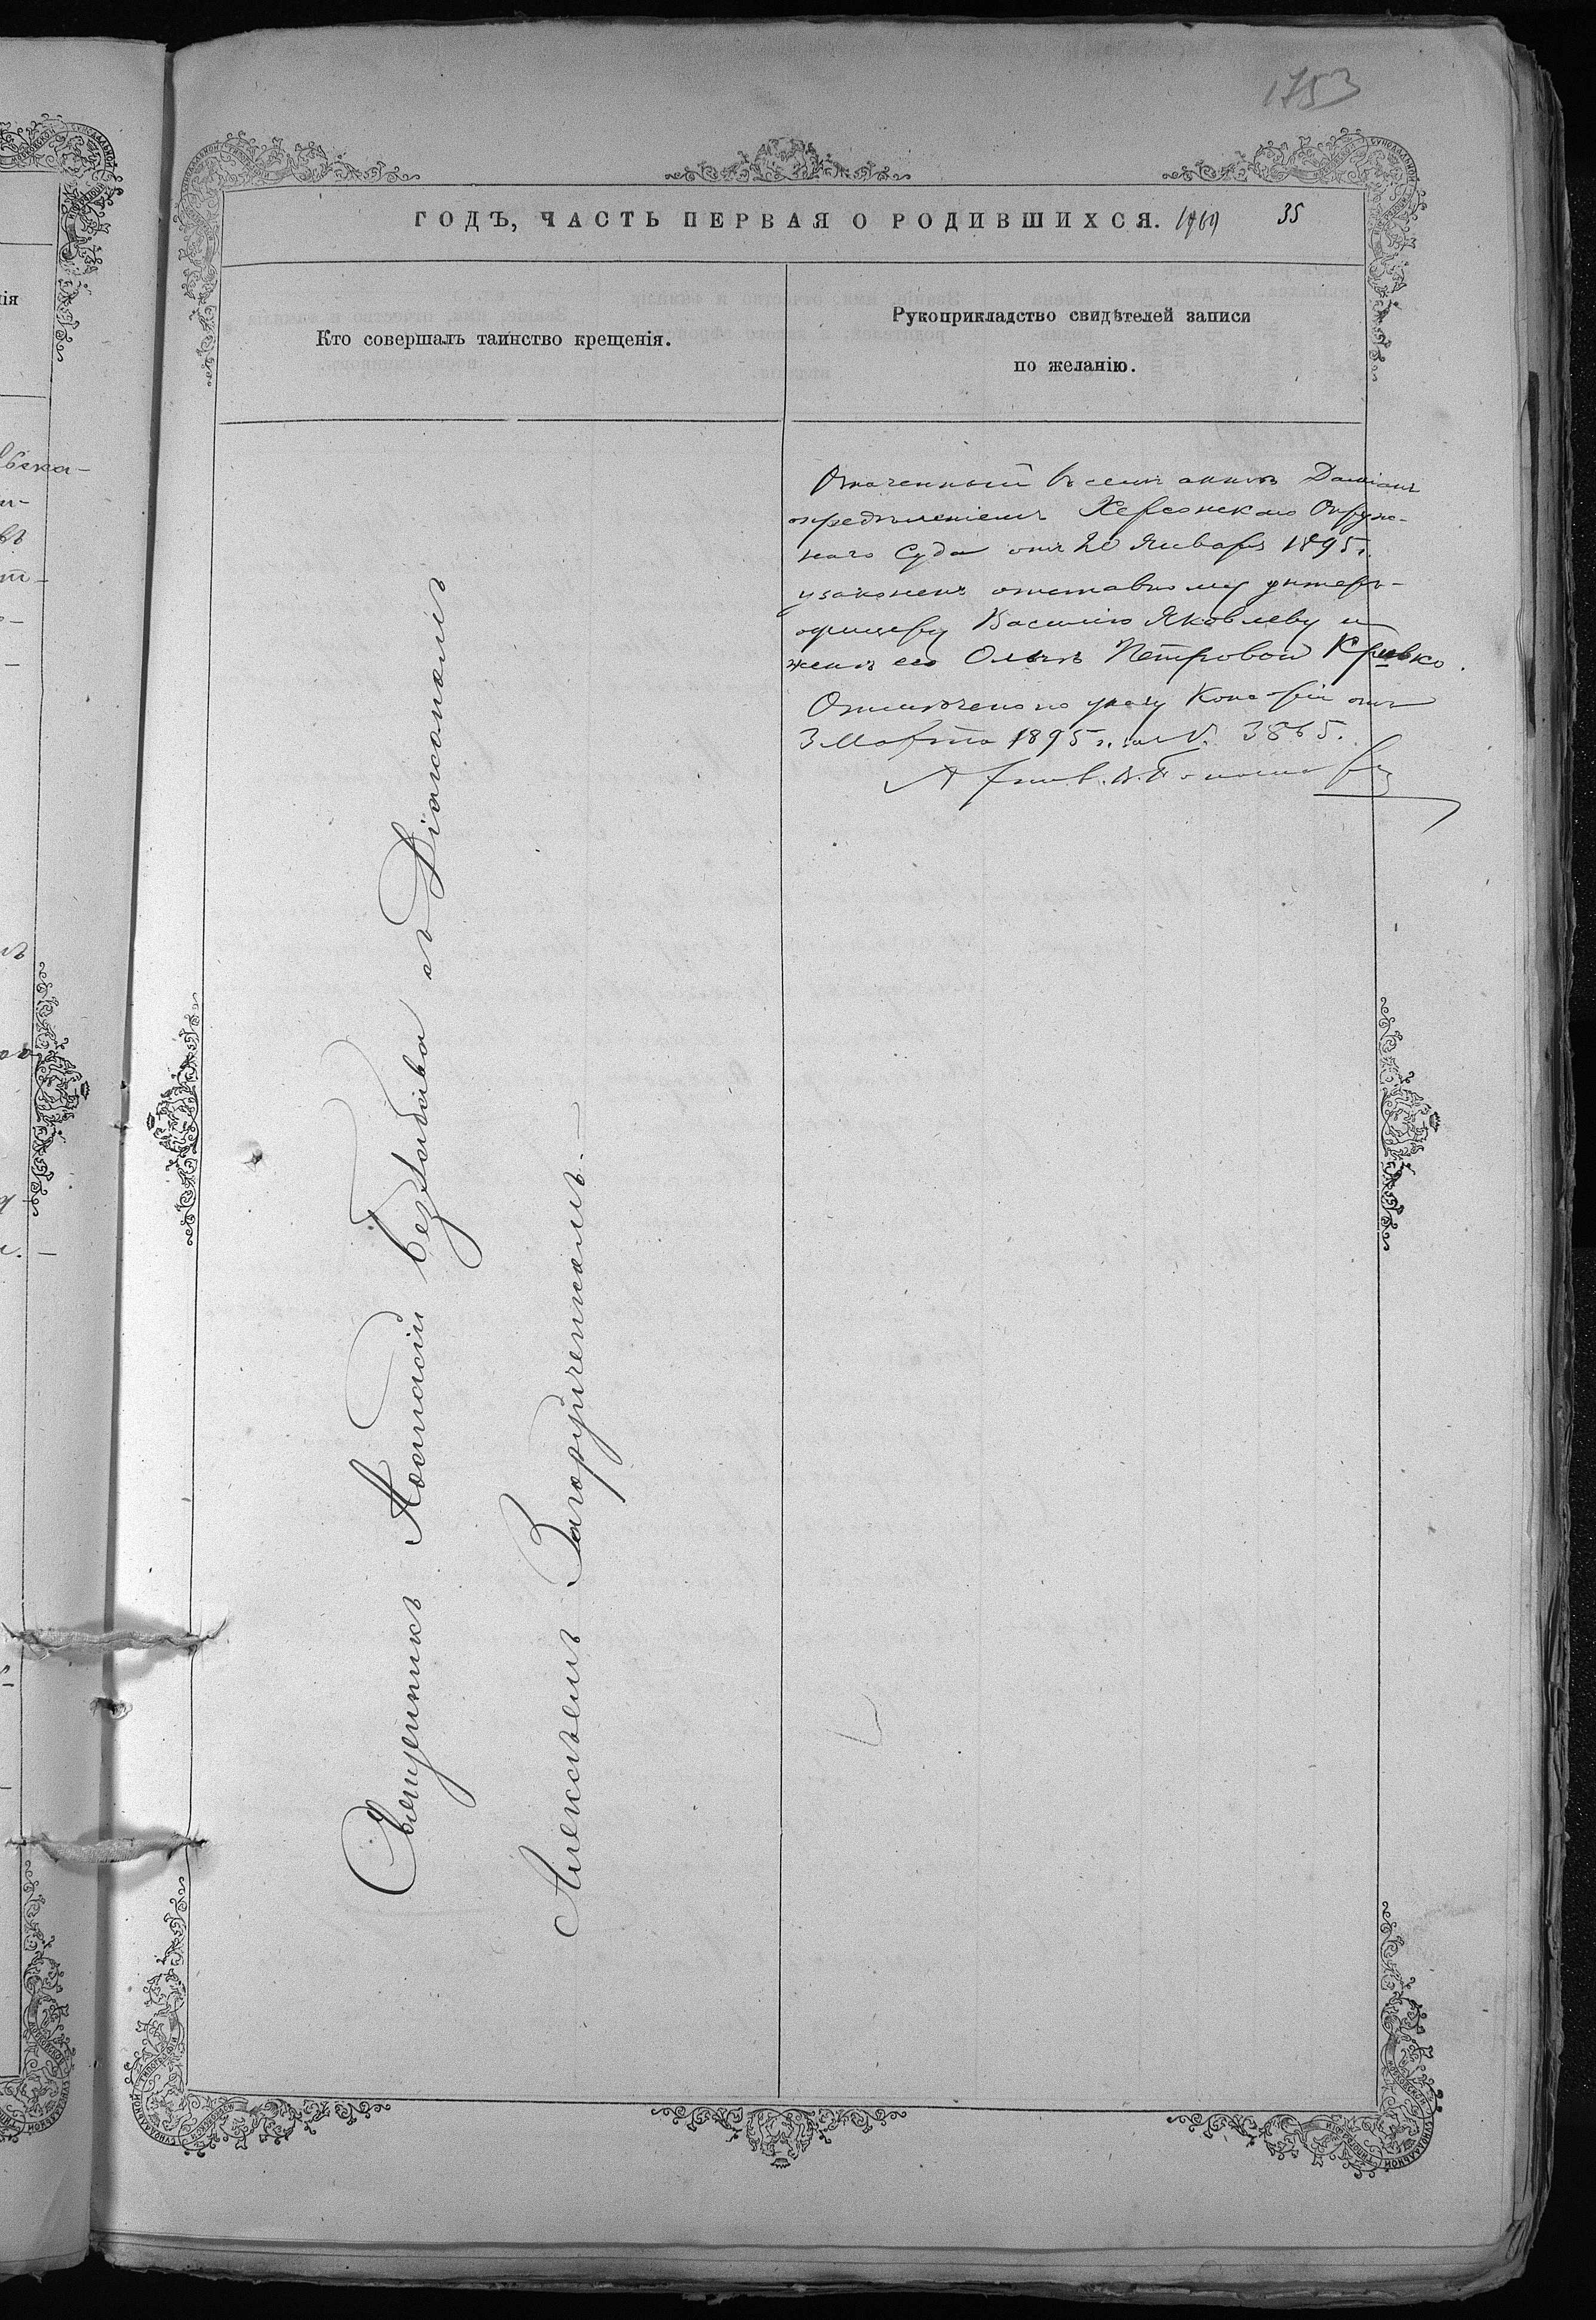 1753
ГОДЪ, ЧАСТЬ ПЕРВАЯ О РОДИВШИХСЯ. 35
Кто совершалъ таинство крещенія.
Рукоприкладство свидѣтелей записи
по желанію.
Священникъ Аѳанасій Беззабава съ Діакономъ
Алексѣемъ Загорученкомъ.
Означенный въ семъ актѣ Даміанъ
опредѣленіемъ Херсонскаго Окруж-
наго Суда отъ 20 Января 1895 г.
узаконенъ отставному унтеръ-
офицеру Василію Яковлеву и
женѣ его Ольгѣ Петровой Кривко.
Отмѣчено по указу Конс-ріи отъ
3 Марта 1895 г. за N. 3865.